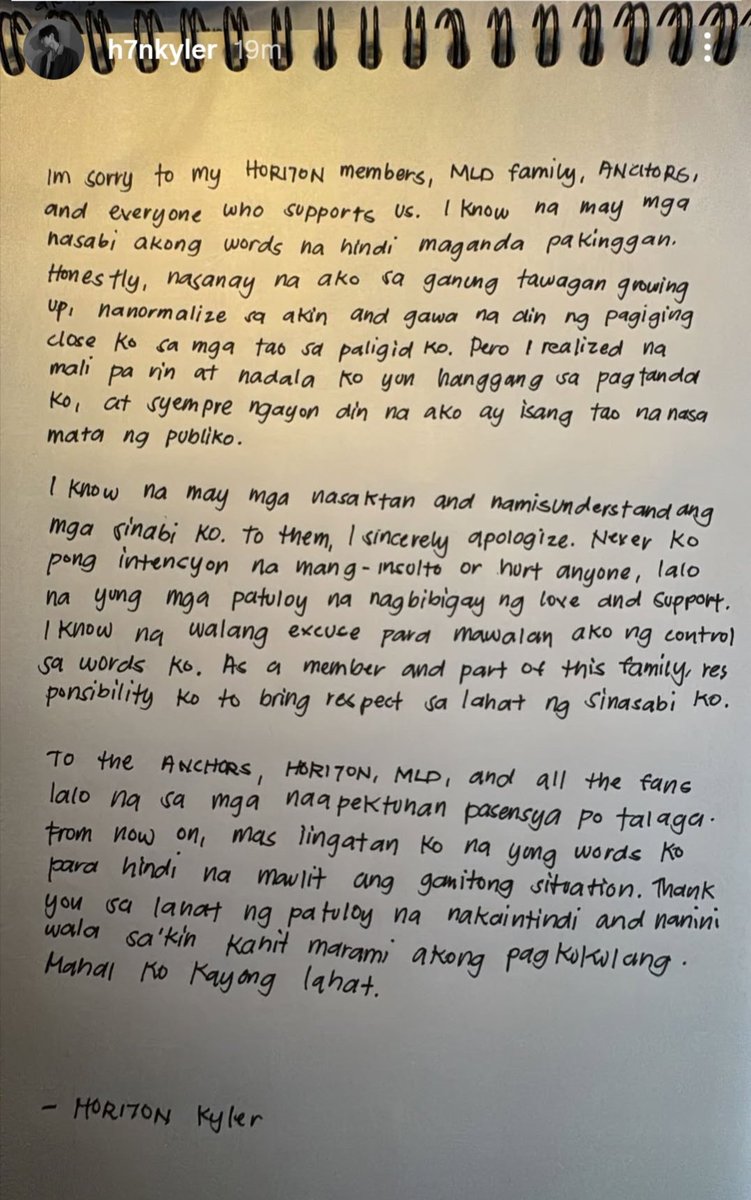 h7nkyler 19m
Im sorry to my HORI7ON members, MLD family, ANCHORS,
and everyone who supports us. I know na may mga
nasabi akong words na hindi maganda pakinggan.
Honestly, nasanay na ako sa ganung tawagan growing
up, nanormalize sa akin and gawa na din ng pagiging
close ko sa mga tao sa paligid ko. Pero I realized na
mali pa rin at nadala ko yun hanggang sa pagtanda
ko, at syempre ngayon din na ako ay isang tao na nasa
mata ng publiko.
I know na may mga nasaktan and namisunderstand ang
mga sinabi ko. To them, I sincerely apologize. Never ko
pong intencyon na mang-insulto or hurt anyone, lalo
na yung mga patuloy na nagbibigay ng love and support.
I know na walang excuse para mawalan ako ng control
sa words ko. As a member and part of this family, res
ponsibility ko to bring respect sa lahat ng sinasabi ko.
To the ANCHORS, HORI7ON, MLD, and all the fans
lalo na sa mga naapektuhan pasensya po talaga.
From now on, mas iingatan ko na yung words ko
para hindi na maulit ang ganitong situation. Thank
you sa lahat ng patuloy na nakaintindi and nanini
wala sa'kin kahit marami akong pagkukulang.
Mahal ko kayong lahat.
- HORI7ON Kyler